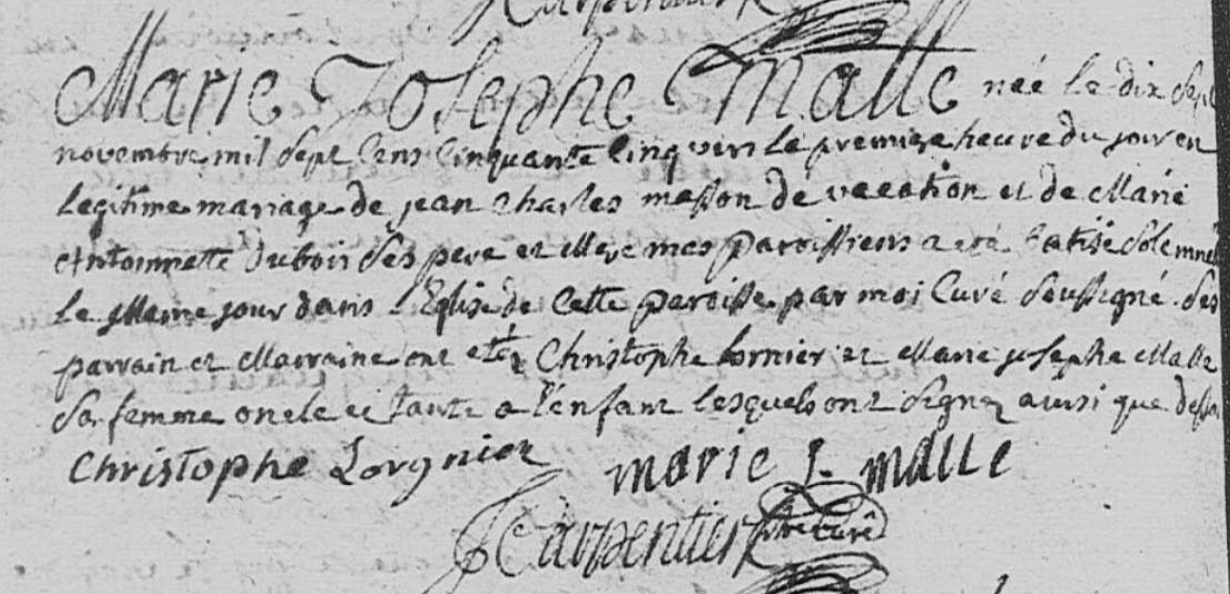 Carpentier
Marie Josephe Malle née le dix sept
novembre mil sept cens cinquante cinq vers la premiere heure du jour en
legitime mariage de jean Charles masson de vacation et de Marie
Antoinnette Dubois ses pere et Mere mes paroissiens a eté batisée solemnel
le Meme jour dans l'Eglise de cette paroisse par moi Curé soussigné. ses
parrain et Marraine ont etéz Christophe Lornier et Marie josephe Malle
sa femme oncle et tante a l'enfant lesquels ont signez ainsi que dessu
Christophe Lorgnier marie J. malle
J Carpentier ptre curé